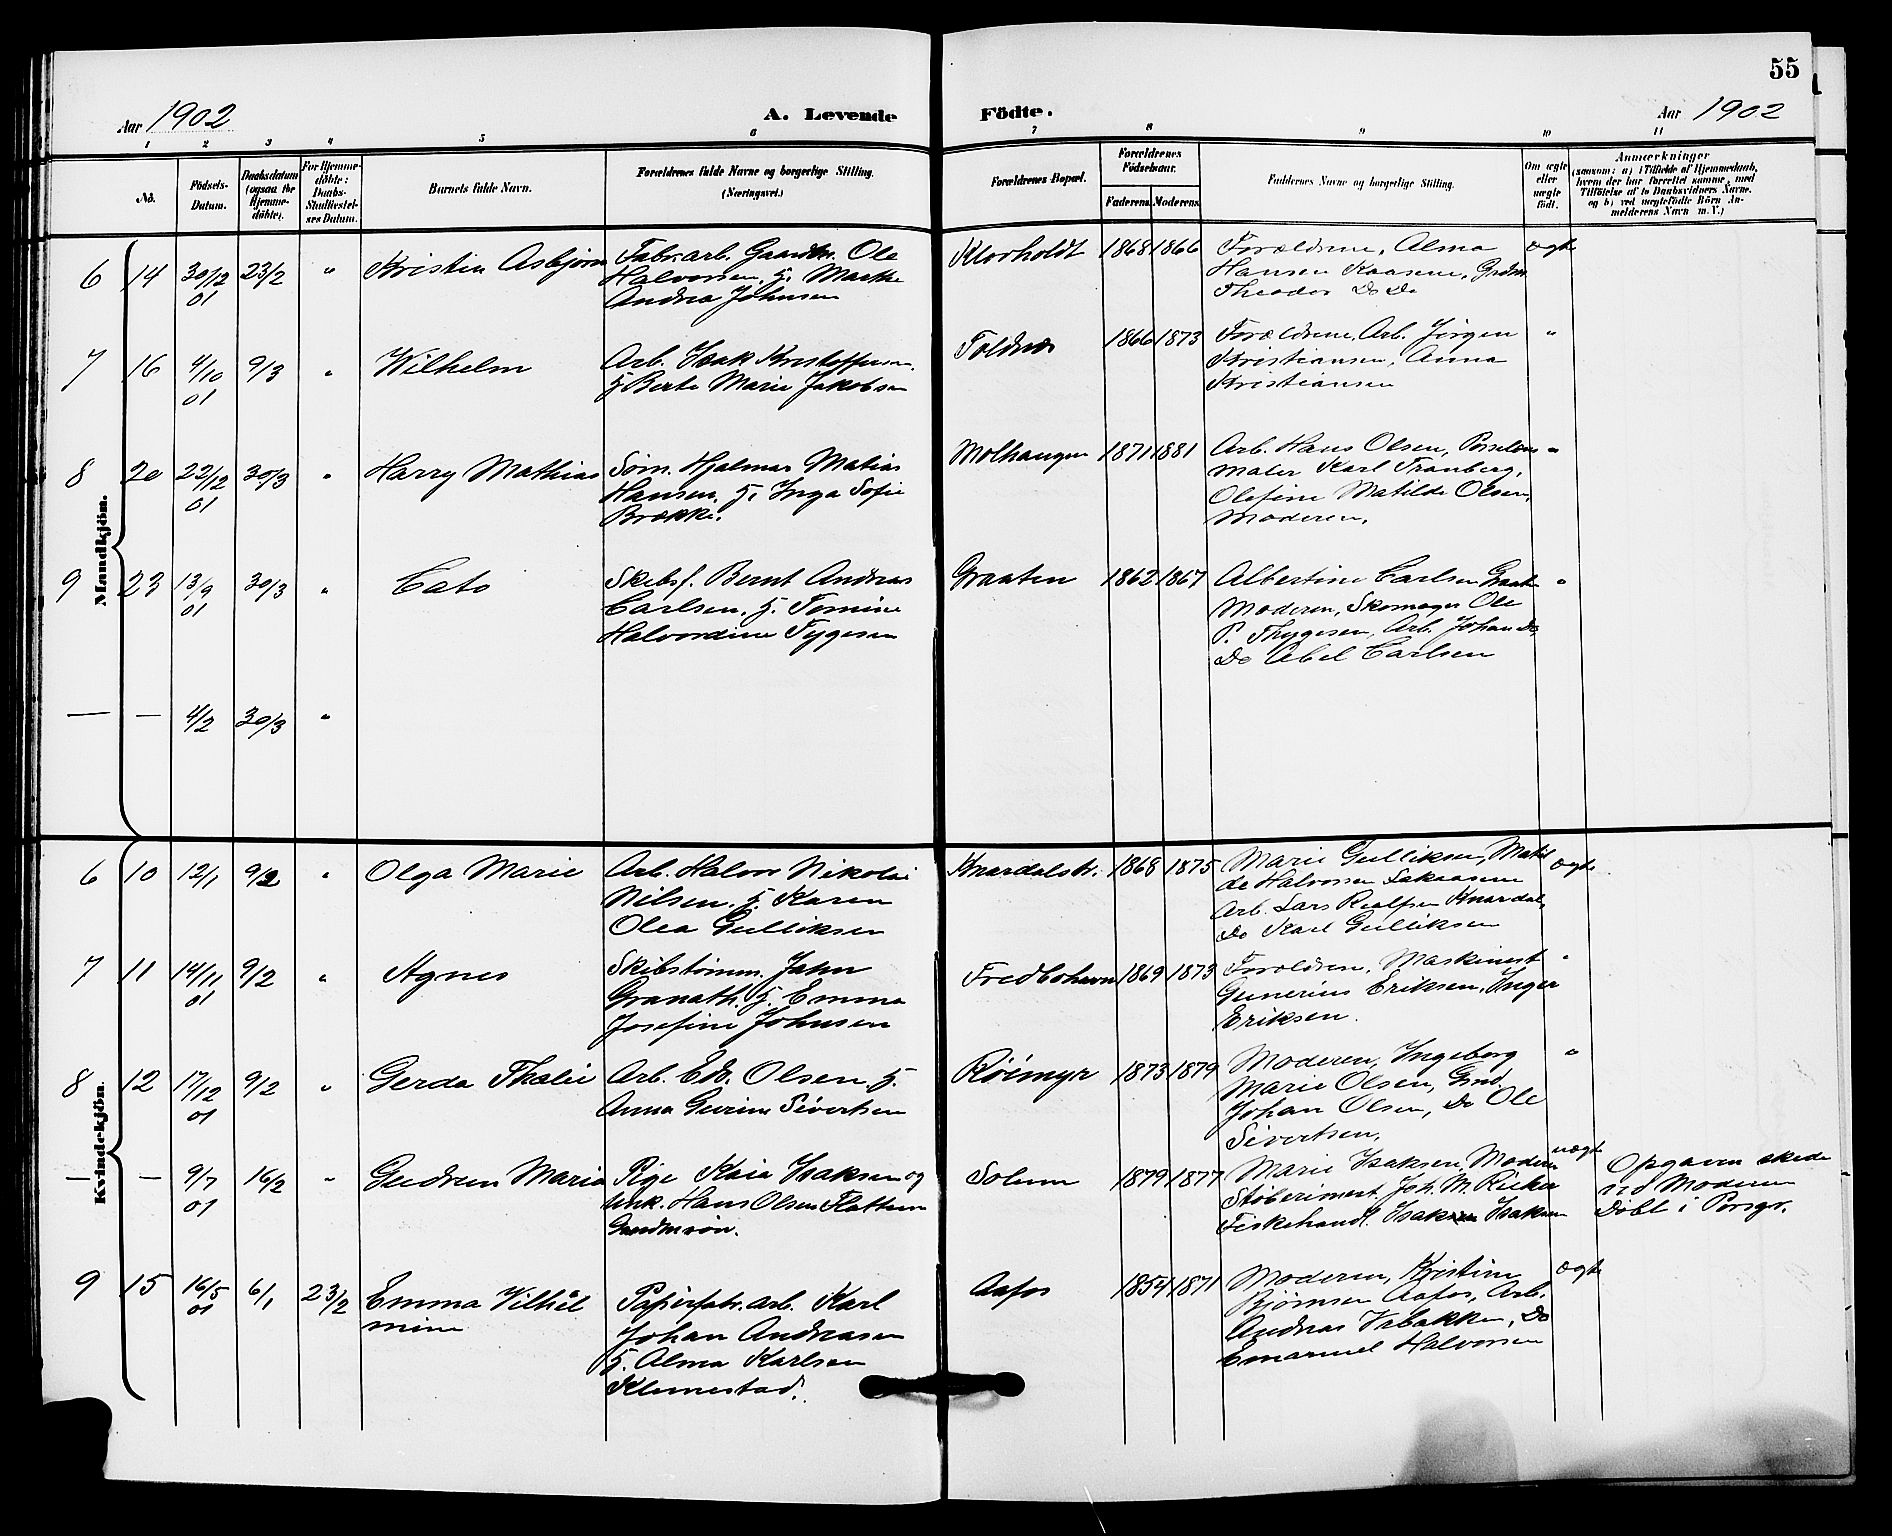 55
Aar 1902
A. Levende
Födte.
Aar 1902
1 2 3 4 5 6 7 8 9 10 11
No.
Födsels-
Datum.
Daabsdatum
(ogsaa for
Hjemme-
döbte).
For Hjemme-
döbte:
Daabs-
Stadfæstel-
ses Datum.
Barnets fulde Navn.
Forældrenes fulde Navne og borgerlige Stilling.
(Næringsvei.)
Forældrenes Bopæl.
Forældrenes
Födselsaar.
Faderens. Moderens.
Faddernes Navne og borgerlige Stilling.
Om ægte
eller
uægte
födt.
Anmærkninger
(saasom: a) i Tilfælde af Hjemmedaab,
hvem der har forrettet samme, med
Tilföielse af to Daabsvidners Navne,
og b) ved uægtefödte Börn An-
melderens Navn m. V.)
Mandkjön.
6 14 30/12 01 23/2 " Kristian Asbjørn
Fabr.arb. Gaardm. Ole
Halvorsen, H. Marthe
Andrea Johnsen
Klovholdt 1868 1866
Forældrene, Alma
Hansen Kaasene, Grdm
Theodor Do Do
ægte
7 16 4/10 01 9/3 " Wilhelm
Arb. Isak Kristoffersen
H. Berte Marie Jakobsen
Toldnes 1866 1873
Forældrene, Arb. Jørgen
Kristiansen, Anna
Kristiansen
"
8 20 22/12 01 30/3 " Harry Mathias
Søm. Hjalmar Matias
Hansen, H. Inga Sofie
Brække.
Molhaugen 1871 1881
Arb. Hans Olsen, Porselæns
maler Karl Tranberg,
Olefine Matilde Olsen,
Moderen.
"
9 23 13/9 01 30/3 " Cato
Skibsf. Bernt Andreas
Carlsen, H. Tomine
Halvordine Tygesen
Graaten 1862 1867
Albertine Carlsen Graaten
Moderen, Skomager Ole
P. Thygesen, Arb. Johan Do,
Do Abel Carlsen
"
— — 4/2 30/3 "
Kvindekjön.
6 10 12/1 9/2 " Olga Marie
Arb. Halvor Nikolai
Nilsen, H. Karen
Olea Gulliksen
Knardalstr. 1868 1875
Marie Gulliksen, Matil
de Halvorsen
Arb. Lars Realfsen Knardal,
Do Karl Gulliksen
ægte
7 11 14/11 01 9/2 " Agnes
Skibstømm. John
Granath, H. Emma
Josefine Johnsen
Fredbohavn 1869 1873
Forældrene, Maskinist
Gunerius Eriksen, Inger
Eriksen.
"
8 12 17/12 01 9/2 " Gerda Thalie
Arb. Edv. Olsen H.
Anna Gurine Sivertsen
Røimyr 1873 1879
Moderen, Ingeborg
Marie Olsen, Grnd.
Johan Olsen, Do Ole
Sivertsen.
"
— — 9/7 01 16/2 " Gudrun Maria
Pige Kaia Isaksen og
Unk. Hans Olsen Flathun
Solum 1879 1877
Marie Isaksen, Moderen
Støberimest. Joh. M. Rieker
Fiskehandl. Isak Isaksen
uægte
Opgaven skede
ved Moderen
Døbt i Porsgr.
9 15 16/5 01 6/1 23/2 Emma Vilhel
mine
Papirfabr.arb. Karl
Johan Andreasen
H. Alma Karlsen
Klemestad.
Aafos 1854 1871
Moderen, Kristine
Bjørnsen Aafos, Arb.
Andreas Vabakken, Do
Emanuel Halvorsen
ægte